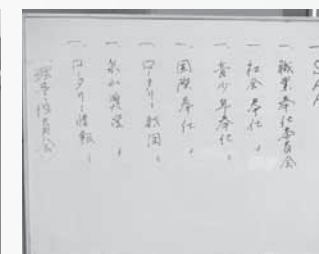 一 SAA
一 職業奉仕委員会
一 社会奉仕 〃
一 青少年奉仕 〃
一 国際奉仕 〃
一 ロータリー財団 〃
一 米山奨学 〃
一 ロータリー情報 〃